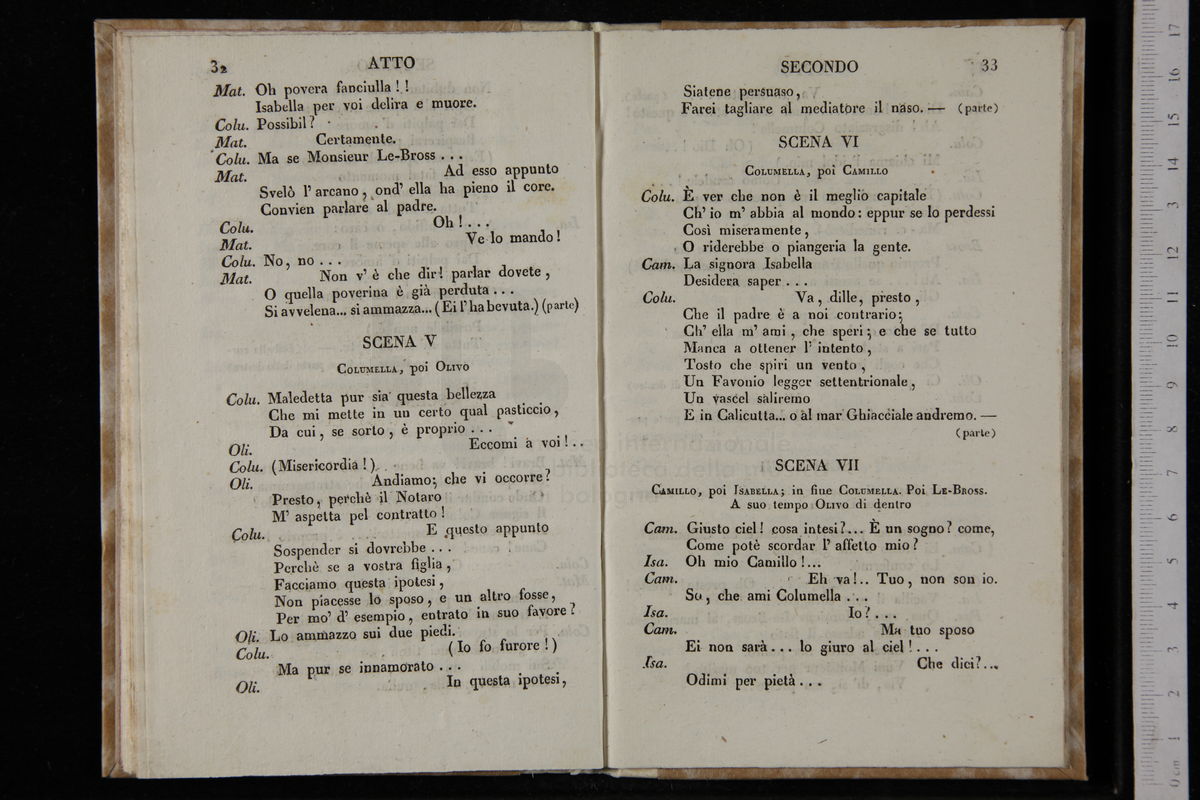 32
ATTO
Mat. Oh povera fanciulla! !
Isabella per voi delira e muore.
Colu. Possibil?
Mat. Certamente.
Colu. Ma se Monsieur Le-Bross . . .
Mat. Ad esso appunto
Svelò l' arcano, ond' ella ha pieno il core.
Convien parlare al padre.
Colu. Oh! . . .
Mat. Ve lo mando!
Colu. No, no . . .
Mat. Non v' è che dir! parlar dovete,
O quella poverina è già perduta . . .
Si avvelena... si ammazza... (Ei l' ha bevuta.) (parte)
SCENA V
COLUMELLA, poi OLIVO
Colu. Maledetta pur sia questa bellezza
Che mi mette in un certo qual pasticcio,
Da cui, se sorto, è proprio . . .
Oli. Eccomi a voi! . .
Colu. (Misericordia!)
Oli. Andiamo; che vi occorre?
Presto, perchè il Notaro
M' aspetta pel contratto!
Colu. E questo appunto
Sospender si dovrebbe . . .
Perchè se a vostra figlia,
Facciamo questa ipotesi,
Non piacesse lo sposo, e un altro fosse,
Per mo' d' esempio, entrato in suo favore?
Oli. Lo ammazzo sui due piedi.
Colu. (Io fo furore!)
Ma pur se innamorato . . .
Oli. In questa ipotesi,
SECONDO
33
Siatene persuaso,
Farei tagliare al mediatore il naso. — (parte)
SCENA VI
COLUMELLA, poi CAMILLO
Colu. È ver che non è il meglio capitale
Ch' io m' abbia al mondo: eppur se lo perdessi
Così miseramente,
O riderebbe o piangeria la gente.
Cam. La signora Isabella
Desidera saper . . .
Colu. Va, dille, presto,
Che il padre è a noi contrario;
Ch' ella m' ami, che speri; e che se tutto
Manca a ottener l' intento,
Tosto che spiri un vento,
Un Favonio legger settentrionale,
Un vascel saliremo
E in Calicutta... o al mar Ghiacciale andremo. —
(parte)
SCENA VII
CAMILLO, poi ISABELLA; in fine COLUMELLA. Poi LE-BROSS.
A suo tempo OLIVO di dentro
Cam. Giusto ciel! cosa intesi?... È un sogno? come,
Come potè scordar l' affetto mio?
Isa. Oh mio Camillo!...
Cam. Eh va!.. Tuo, non son io.
So, che ami Columella . . .
Isa. Io? . . .
Cam. Ma tuo sposo
Ei non sarà . . . lo giuro al ciel! . . .
Isa. Che dici?...
Odimi per pietà . . .